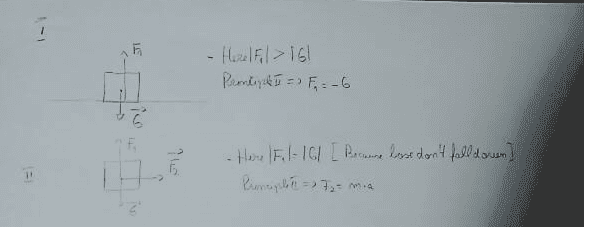 I
F₁
- Here |F₁| > |G|
Principle II => F₁ = -G
G
F₁
II
F₂
- Here |F₁| = |G| [Because boxe don't fall down]
Principle II => F₂ = m.a
G